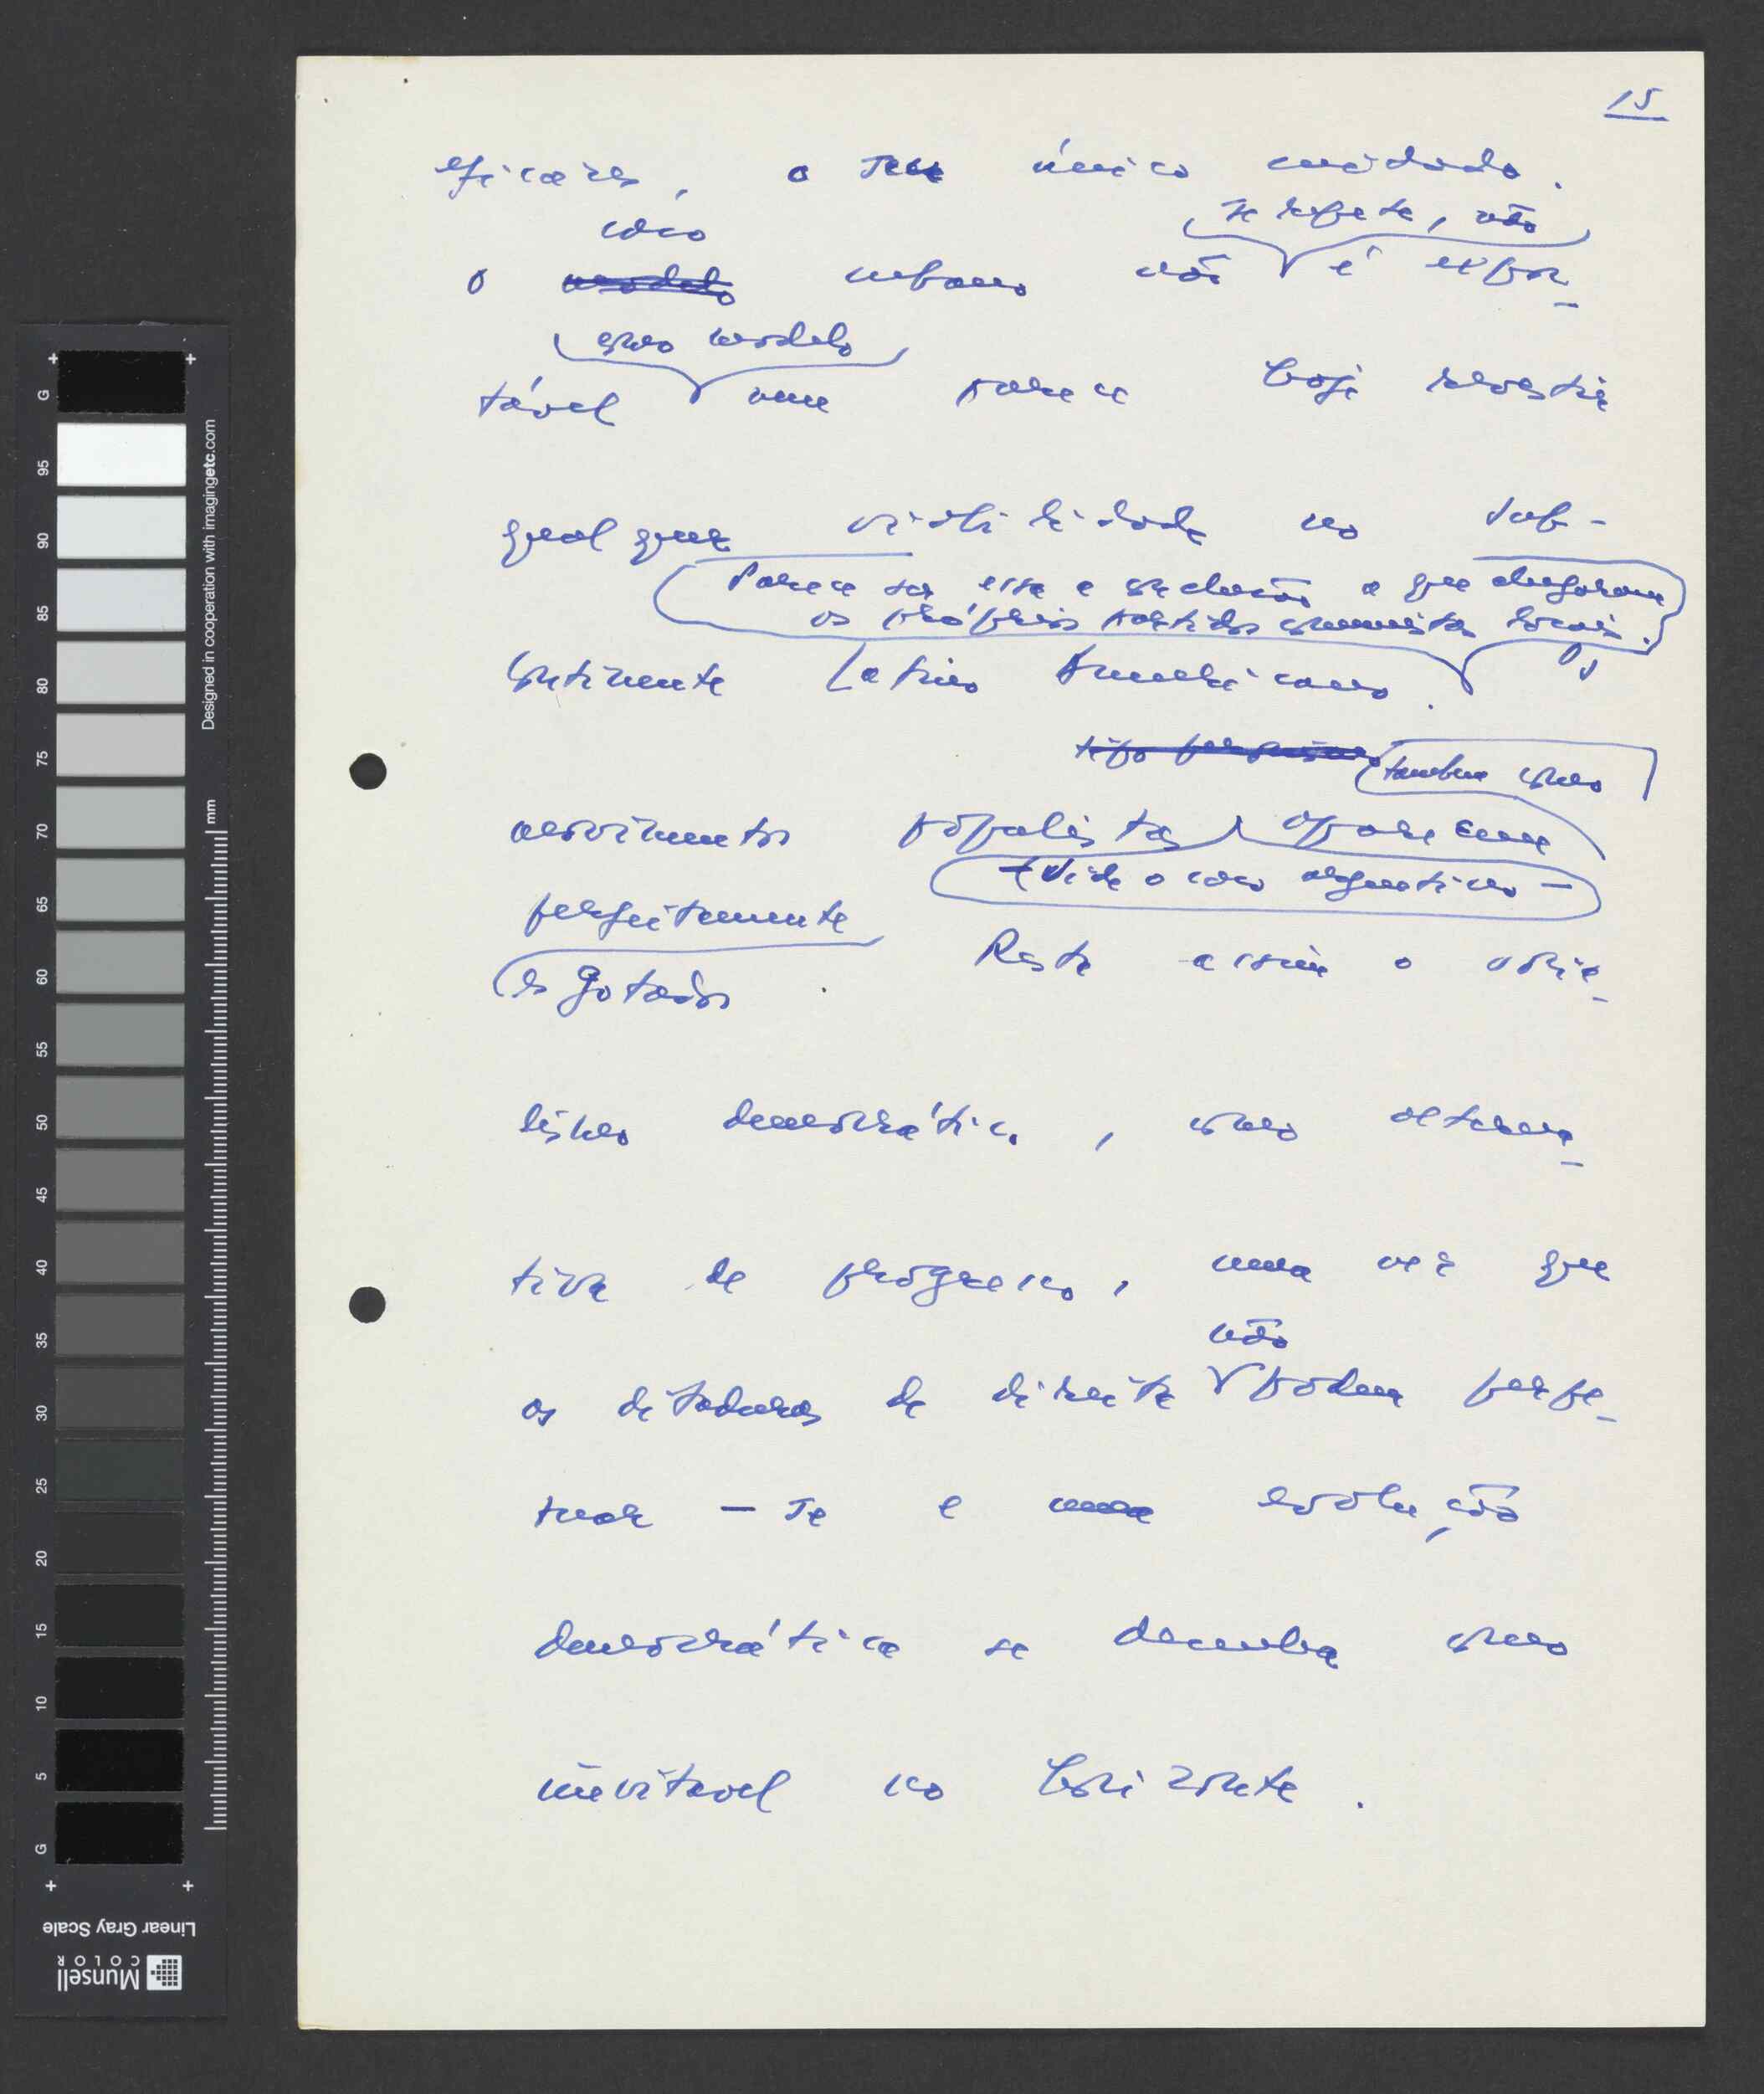 15
eficazes, o seu único cuidado.
caso se repete, não
o modelo cubano não é expor-
como modelo
tável nem parece hoje revestir
qualquer viabilidade no sub-
Parece ser essa a conclusão a que chegaram
os próprios partidos comunistas locais.
continente Latino Americano. Os
tipo também como
movimentos populistas aparecem
(Vide o caso argentino —
perfeitamente
esgotados. Resta assim o socia-
lismo democrático, como alterna-
tiva de progresso, uma vez que
não
as ditaduras de direita podem perpe-
tuar-se e uma evolução
democrática se desenha como
inevitavel no horizonte.
Designed in cooperation with imagingetc.com
mm
G 95 90 85 80 75 70 65 60 55 50 45 40 35 30 25 20 15 10 5 G
Linear Gray Scale
Munsell
COLOR